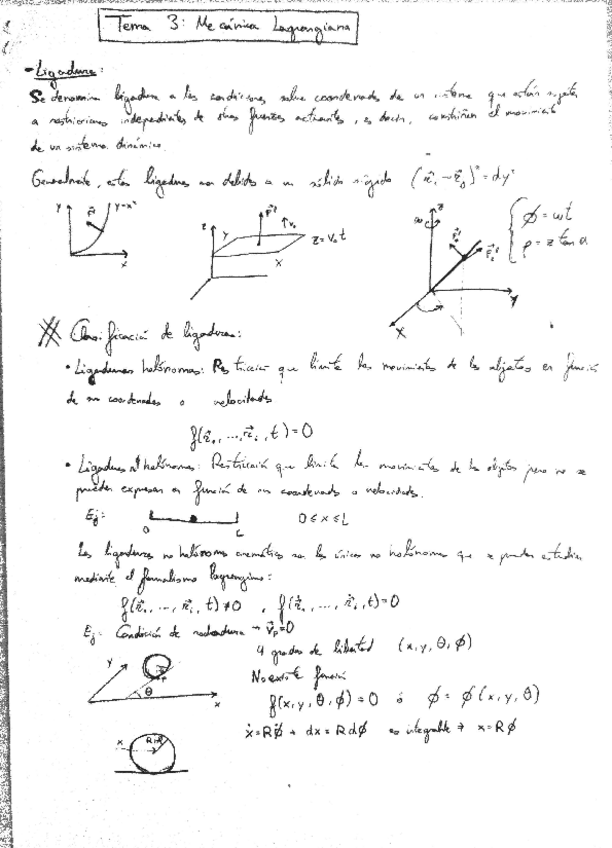 Tema 3: Mecánica Lagrangiana
- Ligadura:
Se denomina ligadura a las condiciones sobre coordenadas de un sistema que están sujetas
a restricciones independientes de otras fuerzas actuantes, es decir, constriñen el movimiento
de un sistema dinámico.
Generalmente, estas ligaduras son debidas a un sólido rígido
y=x²
y
x
z
y
x
v₀
z = v₀t
ω
z
y
x
ϕ = ωt
ρ = z tan α
Clasificación de ligaduras:
• Ligaduras holónomas: Restricción que limita los movimientos de los objetos en función
de sus coordenadas o velocidades
• Ligaduras no holónomas: Restricción que limita los movimientos de los objetos pero no se
pueden expresar en función de sus coordenadas o velocidades.
Ej:
0
L
0 ≤ x ≤ L
Las ligaduras no holónomas cinemáticas son las únicas no holónomas que se pueden estudiar
mediante el formalismo lagrangiano:
Ej: Condición de rodadura → v⃗p=0
4 grados de libertad (x, y, θ, ϕ)
No existe función
f(x, y, θ, ϕ) = 0 ó ϕ = ϕ(x, y, θ)
ẋ = Rϕ̇ → dx = R dϕ es integrable → x = Rϕ
y
θ
x
x